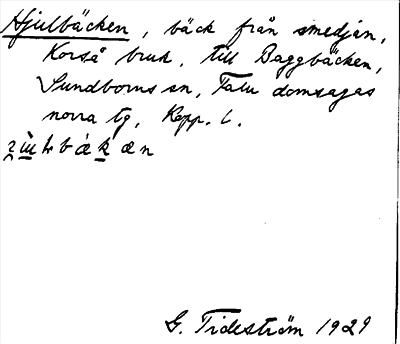 Hjulbäcken, bäck från smedjan,
Korså bruk, till Baggbäcken,
Sundborns sn, Falu domsagas
norra tg, Kopp. l.
G. Tideström 1929